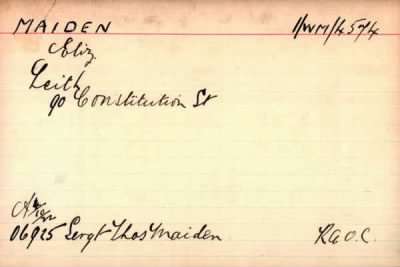 MAIDEN 1/WM/4574
Eliz.
Leith
90 Constitution St
06925 Sergt Thos Maiden R.A.O.C.